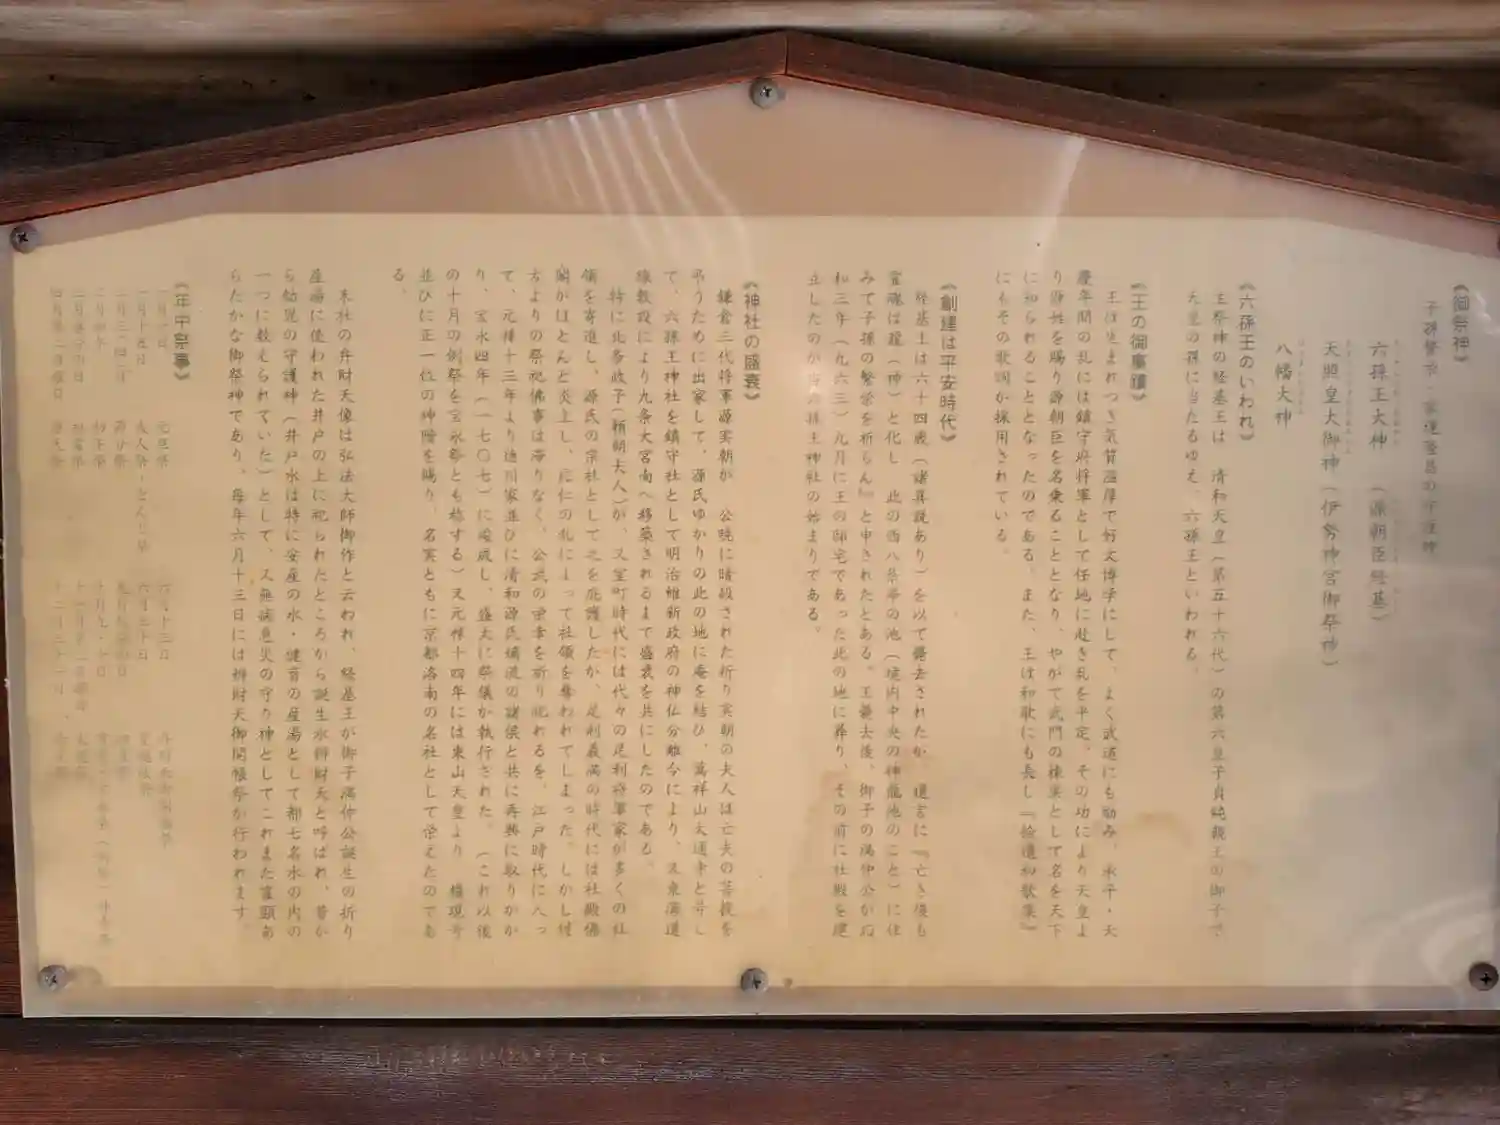 《御祭神》
子孫繁栄・家運隆昌の守護神
六孫王大神 (源朝臣経基)
天照皇大御神 (伊勢神宮御祭神)
八幡大神
《六孫王のいわれ》
主祭神の経基王は 清和天皇(第五十六代)の第六皇子貞純親王の御子で
天皇の孫に当たるゆえ、六孫王といわれる。
《王の御事蹟》
王は生まれつき気質温厚で好文博学にして、よく武道にも励み、承平・天
慶年間の乱には鎮守府将軍として任地に赴き乱を平定、その功により天皇よ
り源姓を賜り源朝臣を名乗ることとなり、やがて武門の棟梁として名を天下
に知られることとなったのである。また、王は和歌にも長し『拾遺和歌集』
にもその歌詞が採用されている。
《創建は平安時代》
経基王は六十四歳(諸異説あり)を以て薨去されたが、遺言に『亡き後も
霊魂は龍(神)と化し 此の西八条亭の池(境内中央の神龍池のこと)に住
みて子孫の繁栄を祈らん』と申されたとある。王薨去後、御子の満仲公が応
和三年(九六三)九月に王の邸宅であった此の地に葬り、その前に社殿を建
立したのが当六孫王神社の始まりである。
《神社の盛衰》
鎌倉三代将軍源実朝が 公暁に暗殺された折り実朝の夫人は亡夫の菩提を
弔うために出家して、源氏ゆかりの此の地に庵を結び、萬祥山大通寺と号し
て、六孫王神社を鎮守社として明治維新政府の神仏分離令により、又東海道
線敷設により九条大宮南へ移築されるまで盛衰を共にしたのである。
特に北条政子(頼朝夫人)が、又室町時代には代々の足利将軍家が多くの社
領を寄進し、源氏の宗社として之を庇護したが、足利義満の時代には社殿佛
閣がほとんど炎上し、応仁の乱によって社領を奪われてしまった。しかし往
古よりの祭祀佛事は滞りなく、公武の栄幸を祈り祀れるを、江戸時代に入っ
て、元禄十三年より徳川家並びに清和源氏嫡流の諸侯と共に再興に取りかか
り、宝永四年(一七〇七)に竣成し、盛大に祭儀が執行された。(これ以後
の十月の例祭を宝永祭とも称する)又元禄十四年には東山天皇より 権現号
並びに正一位の神階を賜り、名実ともに京都洛南の名社として栄えたのであ
る。
末社の弁財天像は弘法大師御作と云われ、経基王が御子満仲公誕生の折り
産湯に使われた井戸の上に祀られたところから誕生水辨財天と呼ばれ、昔か
ら幼児の守護神(井戸水は特に安産の水・健育の産湯として都七名水の内の
一つに数えられていた)として、又無病息災の守り神としてこれまた霊顕あ
らたかな御祭神であり、毎年六月十三日には辨財天御開帳祭が行われます。
《年中祭事》
一月一日 元旦祭 六月十三日
一月十五日 成人祭・とんど祭 六月三十日
二月三・四日 節分祭
二月初午 初午祭